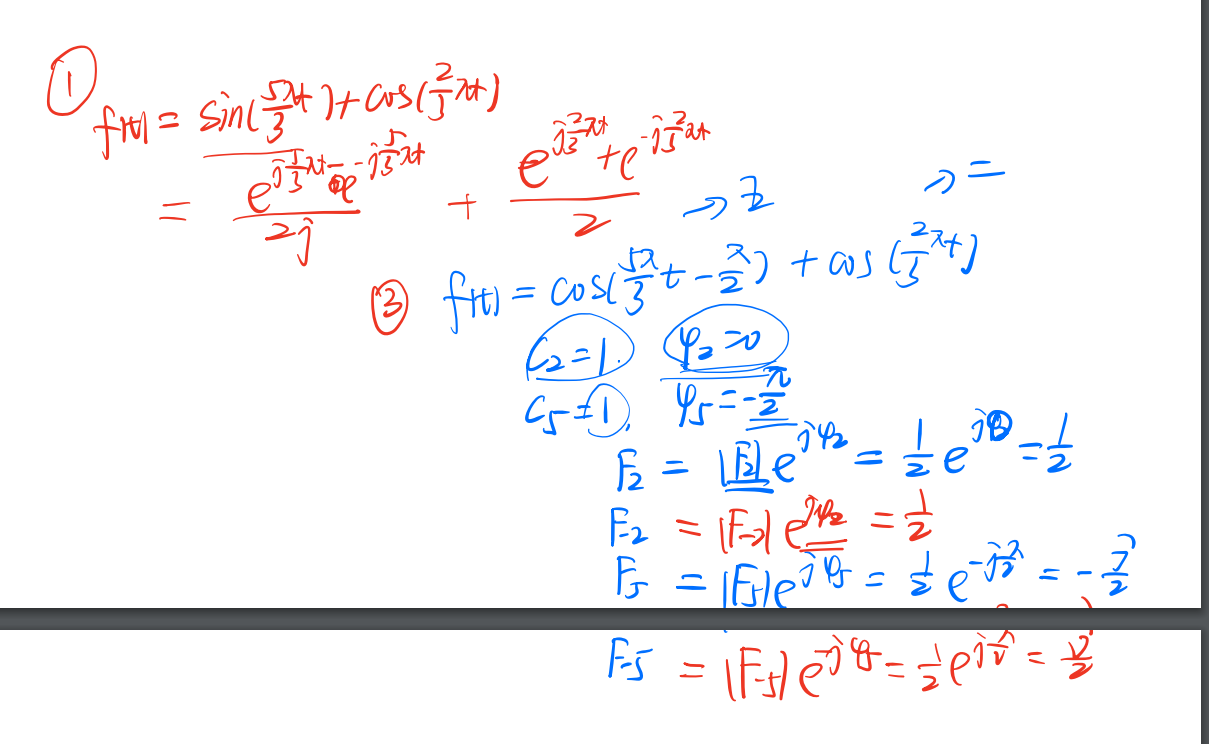 ①
f(t) = sin(5πt/3) + cos(2/3 πt)
= (e^{j5/3πt} - e^{-j5/3πt})/2j + (e^{j2/3πt} + e^{-j2/3πt})/2
→ =
f(t) = cos(5π/3 t - π/2) + cos(2/3 πt)
C₂=1. φ₂=0
C₅=1, φ₅=-π/2
F₂ = |F₂|e^{jφ₂} = 1/2 e^{j0} = 1/2
F₋₂ = |F₋₂| e^{jφ₂} = 1/2
F₅ = |F₅|e^{jφ₅} = 1/2 e^{-jπ/2} = -j/2
F₋₅ = |F₋₅| e^{-jφ₅} = 1/2 e^{jπ/2} = j/2